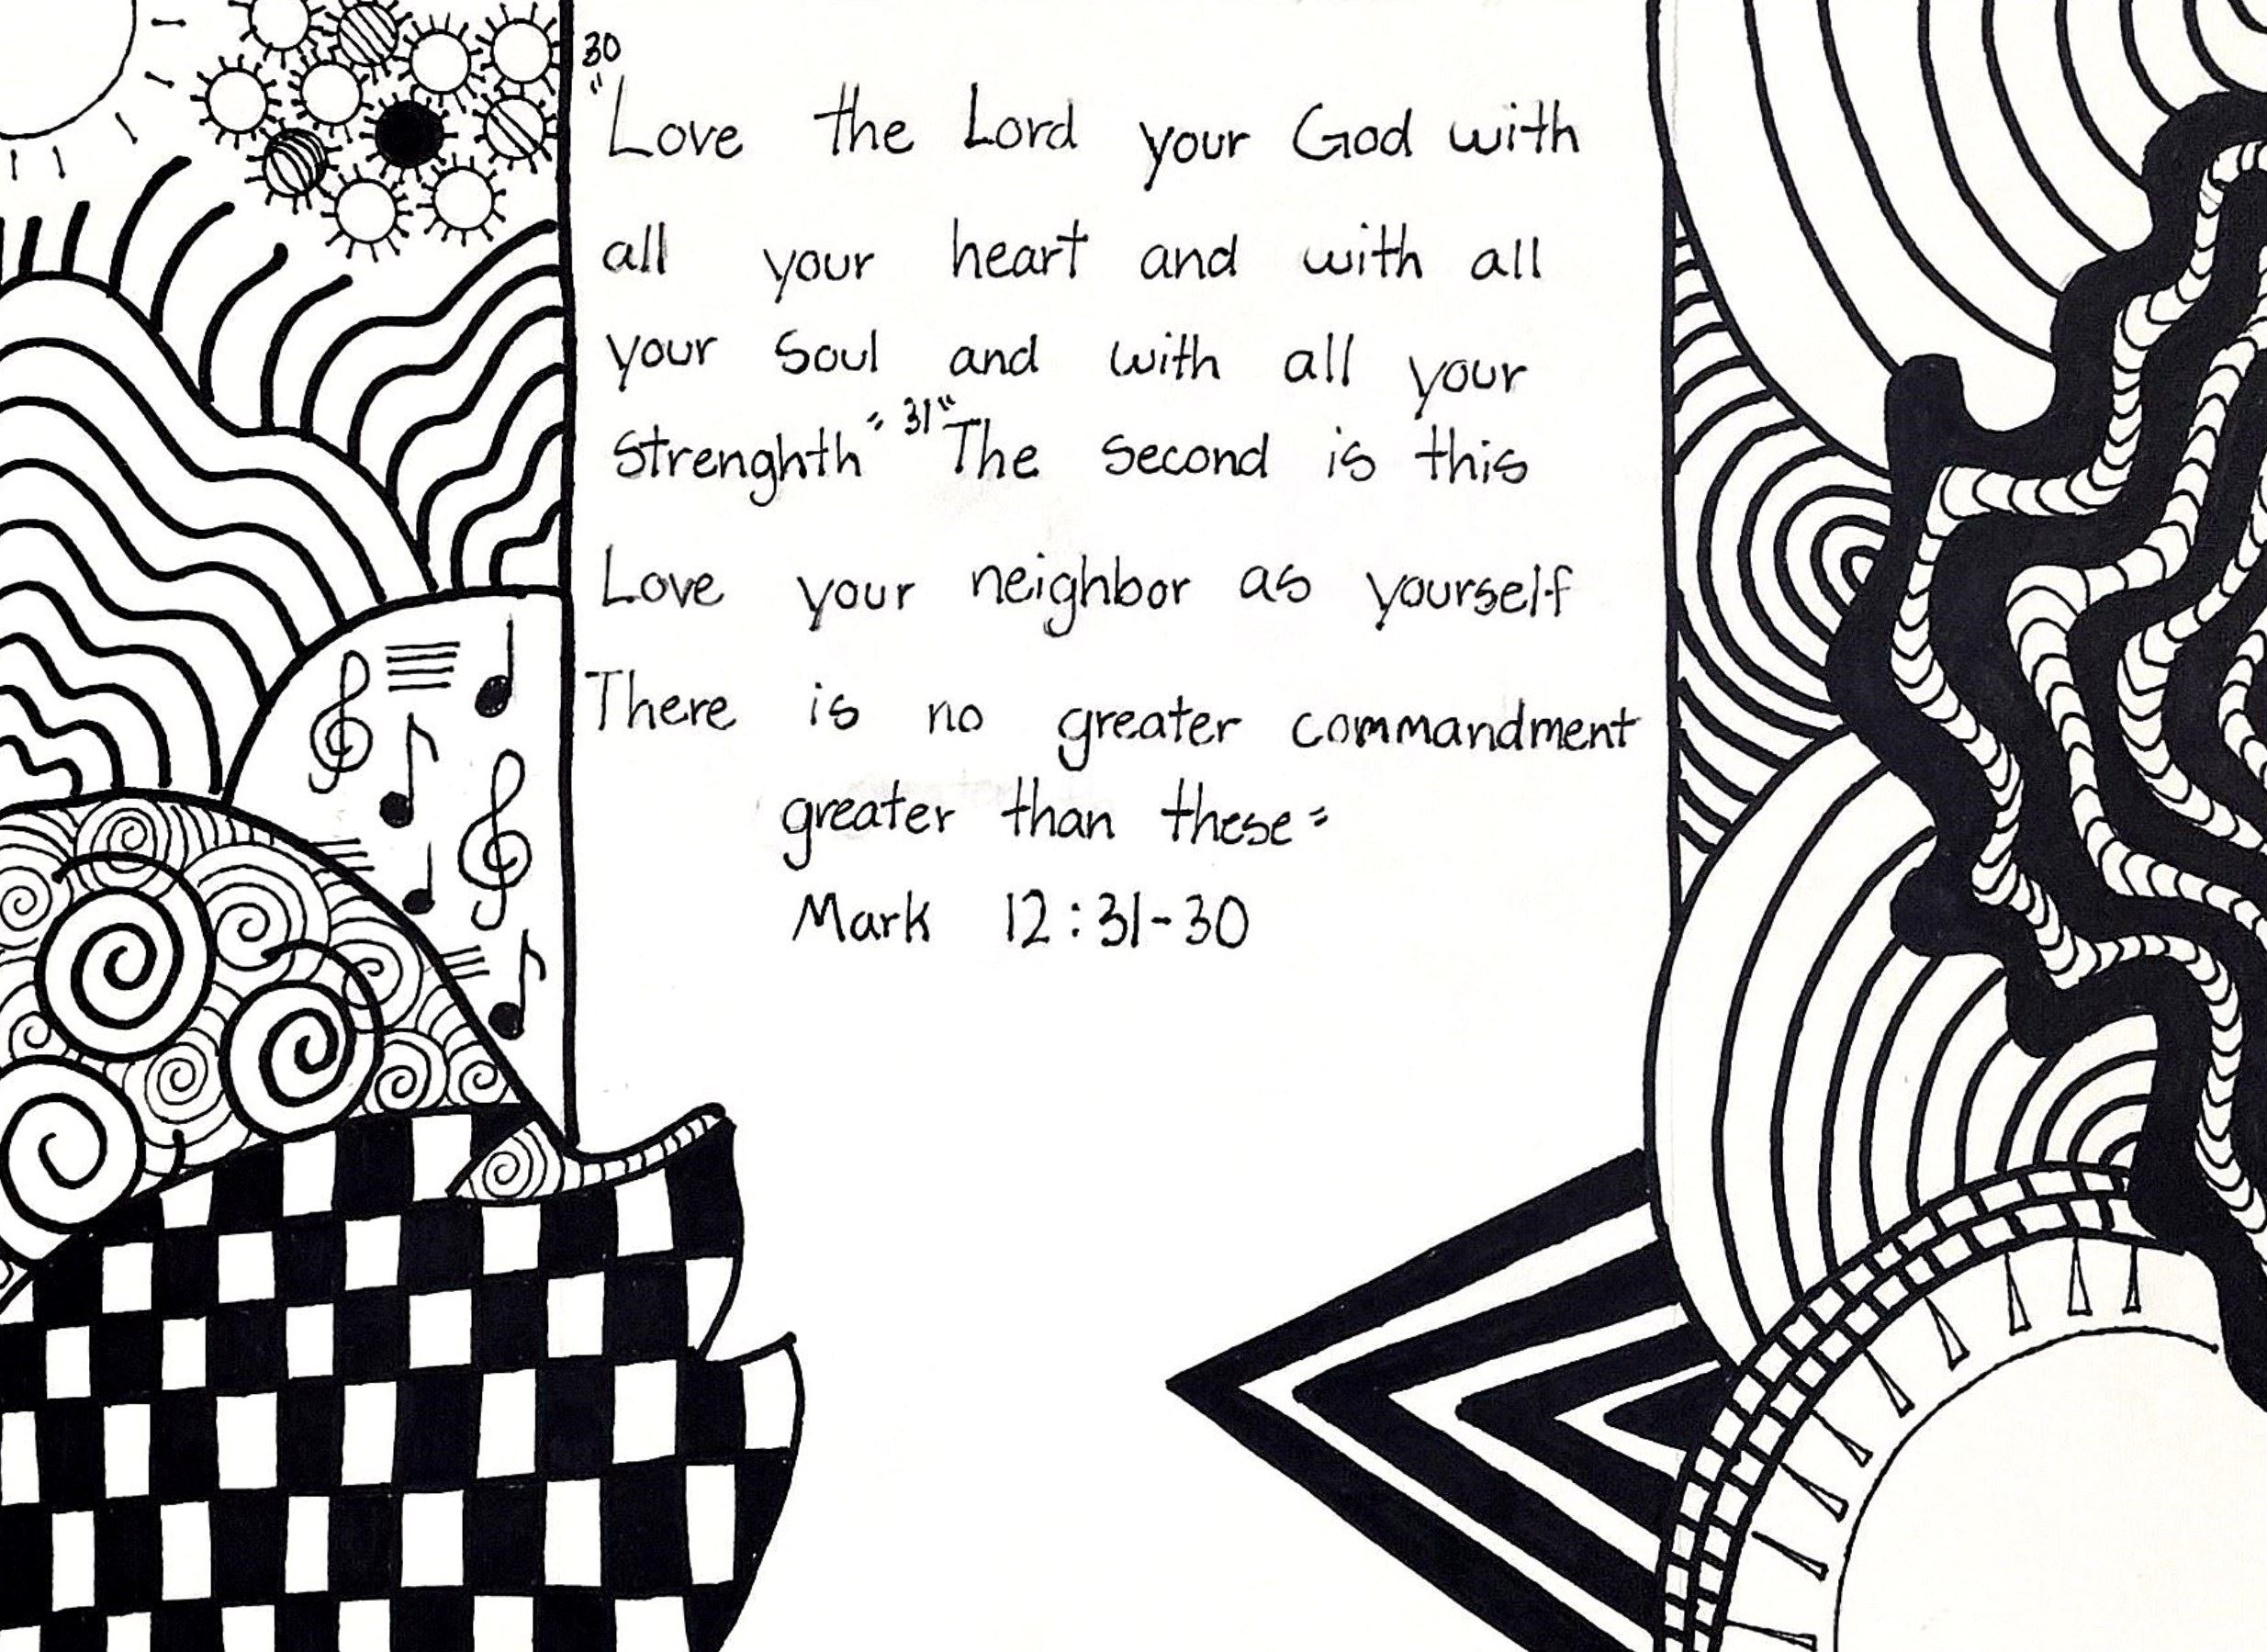 30
"Love the Lord your God with
all your heart and with all
your Soul and with all your
Strenghth" 31 "The Second is this
Love your neighbor as yourself
There is no greater commandment
greater than these"
Mark 12:31-30